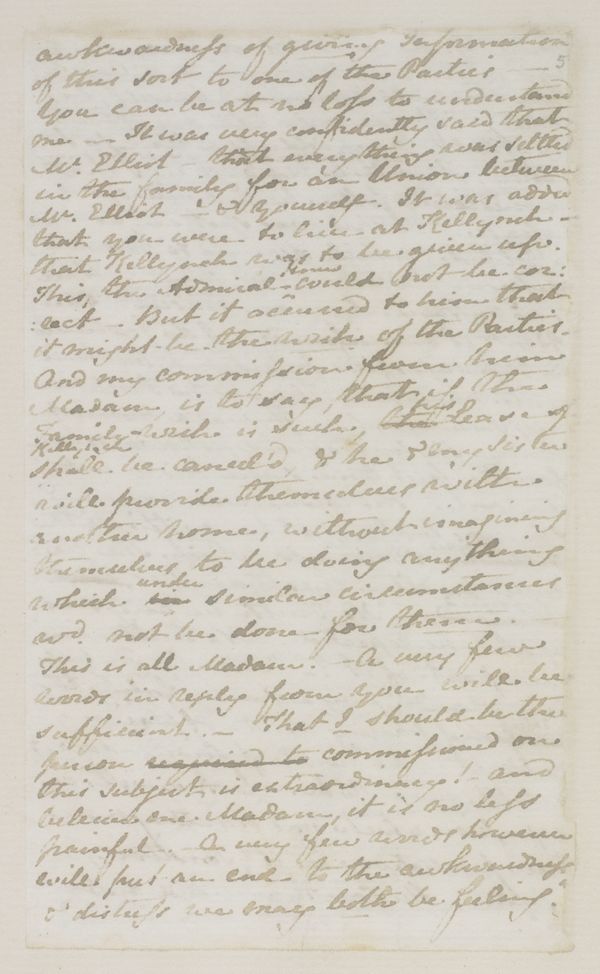 awkwardness of giving Information
of this sort to one of the Parties —
5
You can be at no loss to understand
me — It was very confidently said that
Mr. Elliot — that everything was settled
in the family for an Union between
Mr. Elliot — & Yourself. It was added
that you were to live at Kellynch —
that Kellynch was to be given up.
This, the Admiral knew could not be cor:
:rect — But it occurred to him that
it might be the wish of the Parties —
And my commission from him
Madam, is to say, that if the
Family wish is such, the his Lease of
Kellynch
shall be cancel'd, & he & my sister
will provide themselves with
another home, without imagining
themselves to be doing anything
which in under similar circumstances
wd. not be done for them. —
This is all Madam. — A very few
words in reply from you will be
sufficient. — That I should be the
person required to commissioned on
this subject is extraordinary! — and
believe me Madam, it is no less
painful. — A very few words however
will put an end to the awkwardness
& distress we may both be feeling."